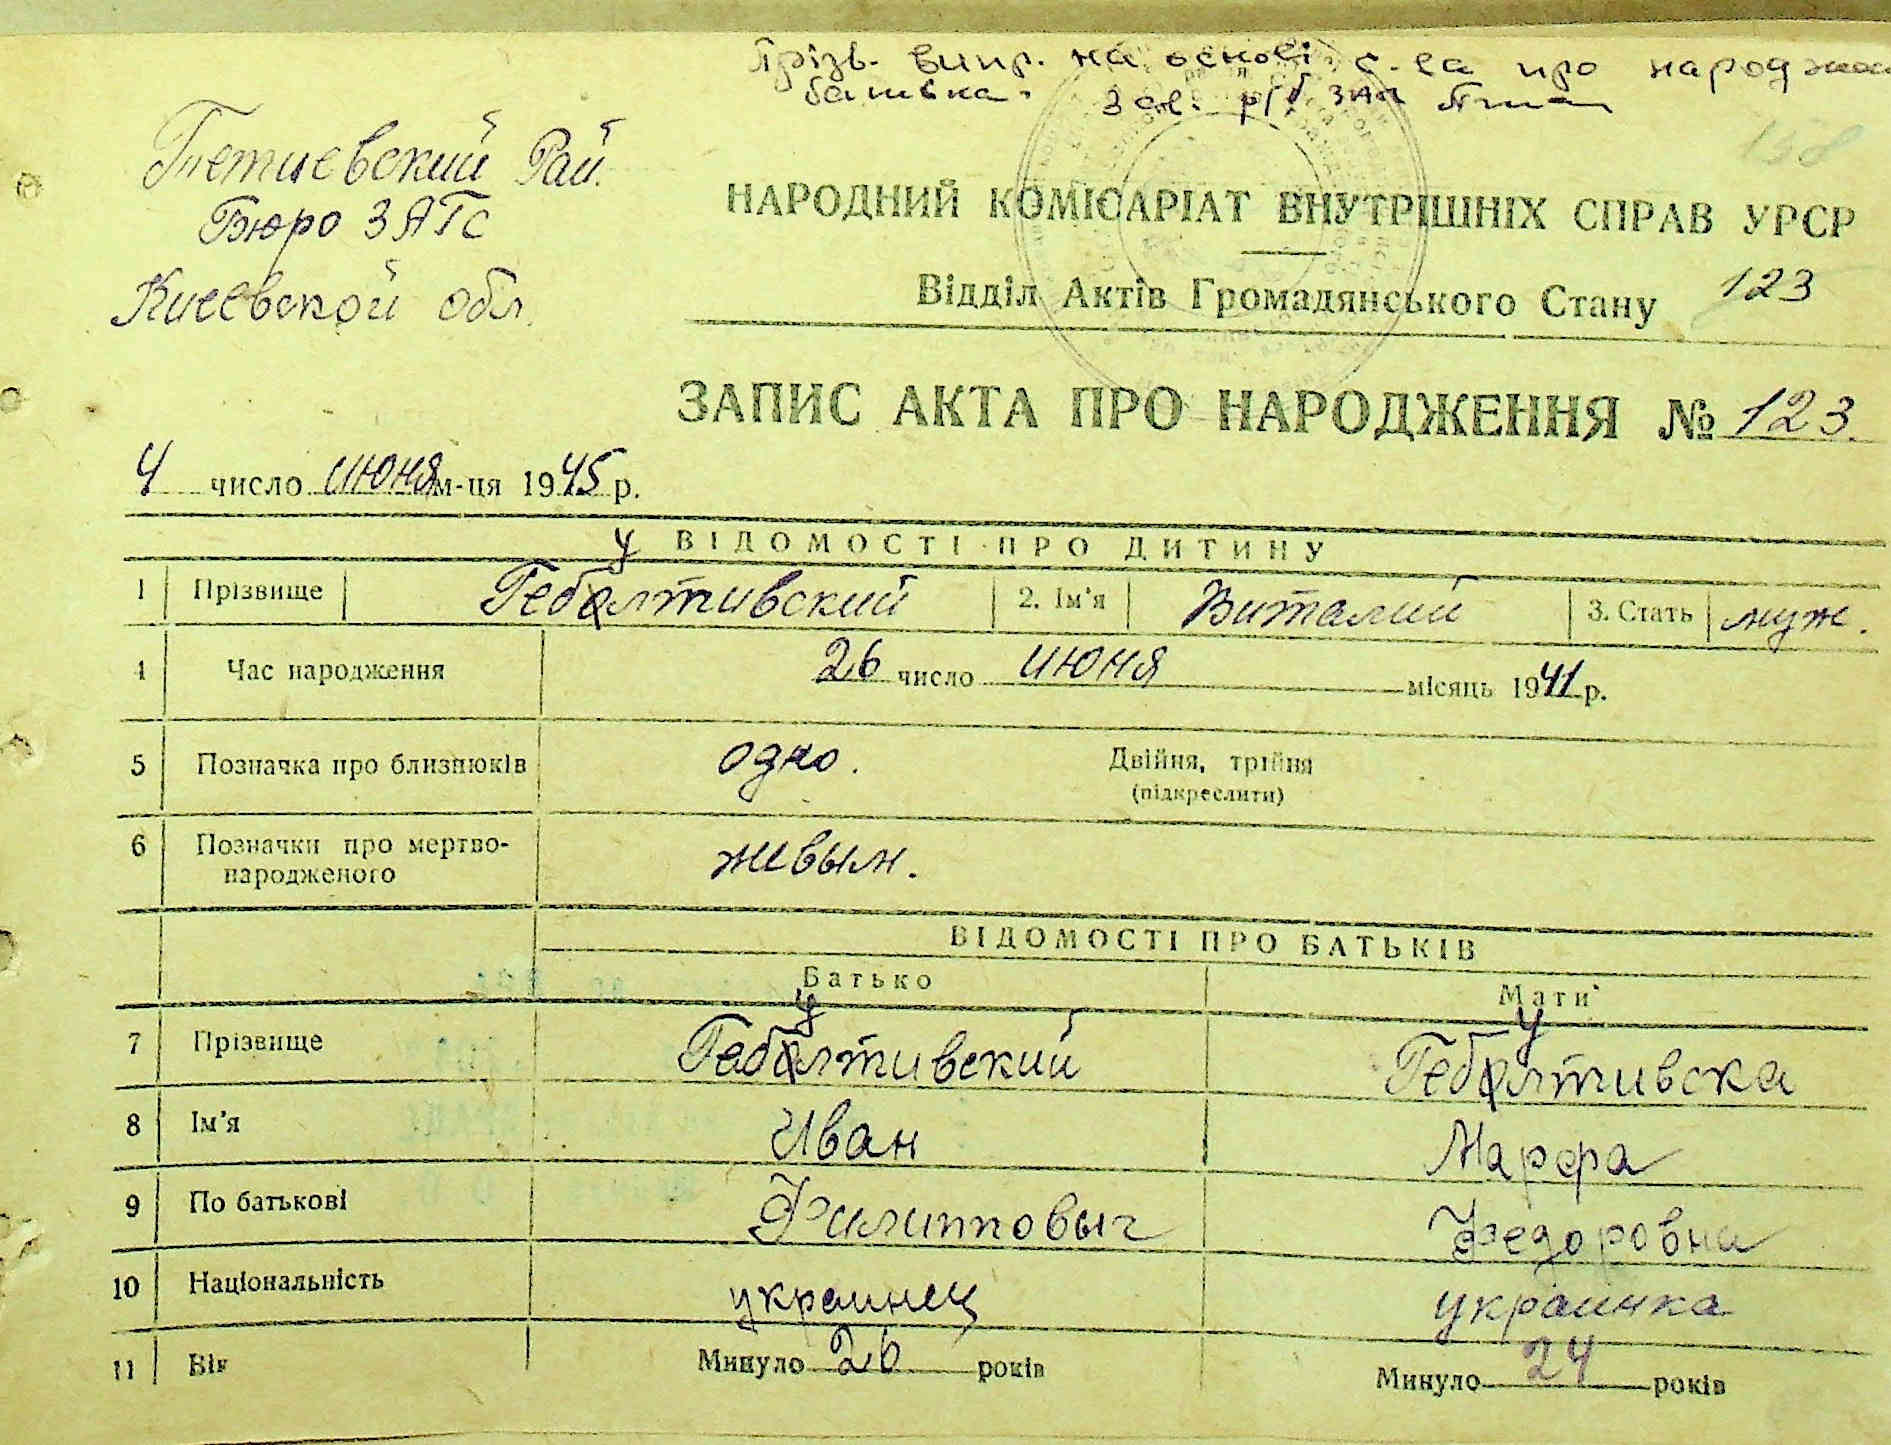 Прізв. випр. на основі с.-ва про народжен
батька. Зав. р/б ЗАГС
158
Тетиевский Рай.
Бюро ЗАГС
Киевской обл.
НАРОДНИЙ КОМІСАРІАТ ВНУТРІШНІХ СПРАВ УРСР
Відділ Актів Громадянського Стану 123
ЗАПИС АКТА ПРО НАРОДЖЕННЯ № 123.
4 число июня м-ця 1945 р.
ВІДОМОСТІ ПРО ДИТИНУ
у
1 Прізвище Гебалтивский 2. Ім'я Виталий 3. Стать муж.
4 Час народження 26 число июня місяць 1941 р.
5 Позначка про близнюків одно. Двійня, трійня
(підкреслити)
6 Позначки про мертво-
народженого живым.
ВІДОМОСТІ ПРО БАТЬКІВ
Батько Мати
у у
7 Прізвище Гебалтивский Гебалтивска
8 Ім'я Иван Марфа
9 По батькові Филипповыч Федоровна
10 Національність украинец украинка
11 Вік Минуло 26 років Минуло 24 років